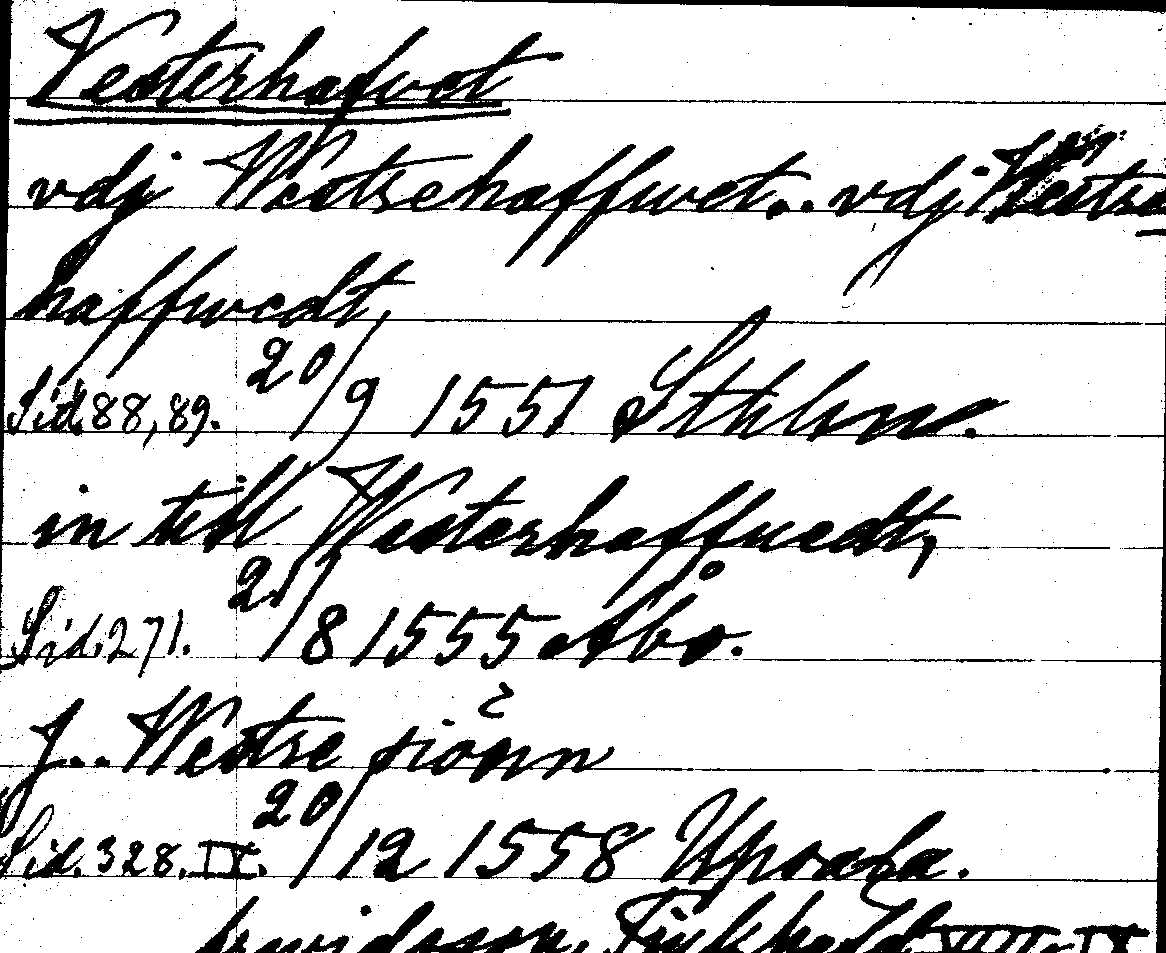 Vesterhafvet
vdj Westrehaffwet.. vdj Westre
haffwedt,
Sid. 88, 89. 20/9 1551 Sthlm.
in till Westerhaffuedt,
Sid. 271. 21/8 1555 Åbo.
J.. Westre siönn
Sid. 328. IX. 20/12 1558 Upsala.
Arwidsson, Finl. VIII